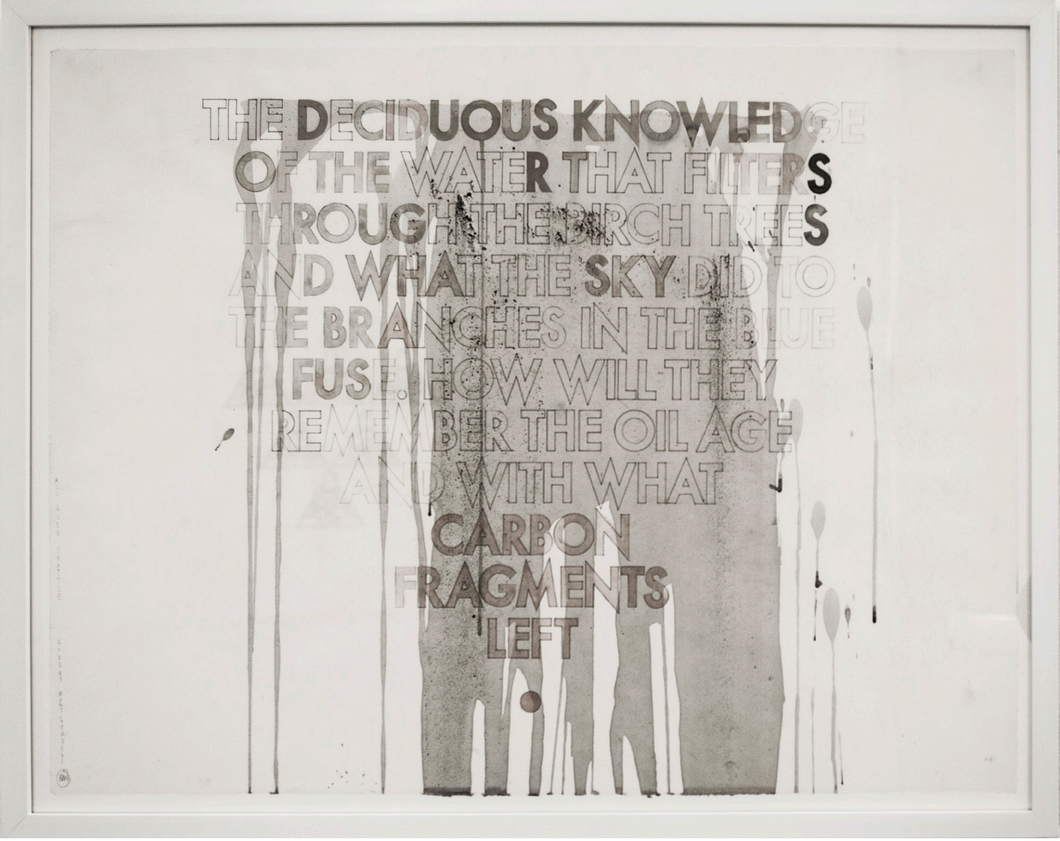 THE DECIDUOUS KNOWLEDGE
OF THE WATER THAT FILTERS
THROUGH THE BIRCH TREES
AND WHAT THE SKY DID TO
THE BRANCHES IN THE BLUE
FUSE. HOW WILL THEY
REMEMBER THE OIL AGE
AND WITH WHAT
CARBON
FRAGMENTS
LEFT